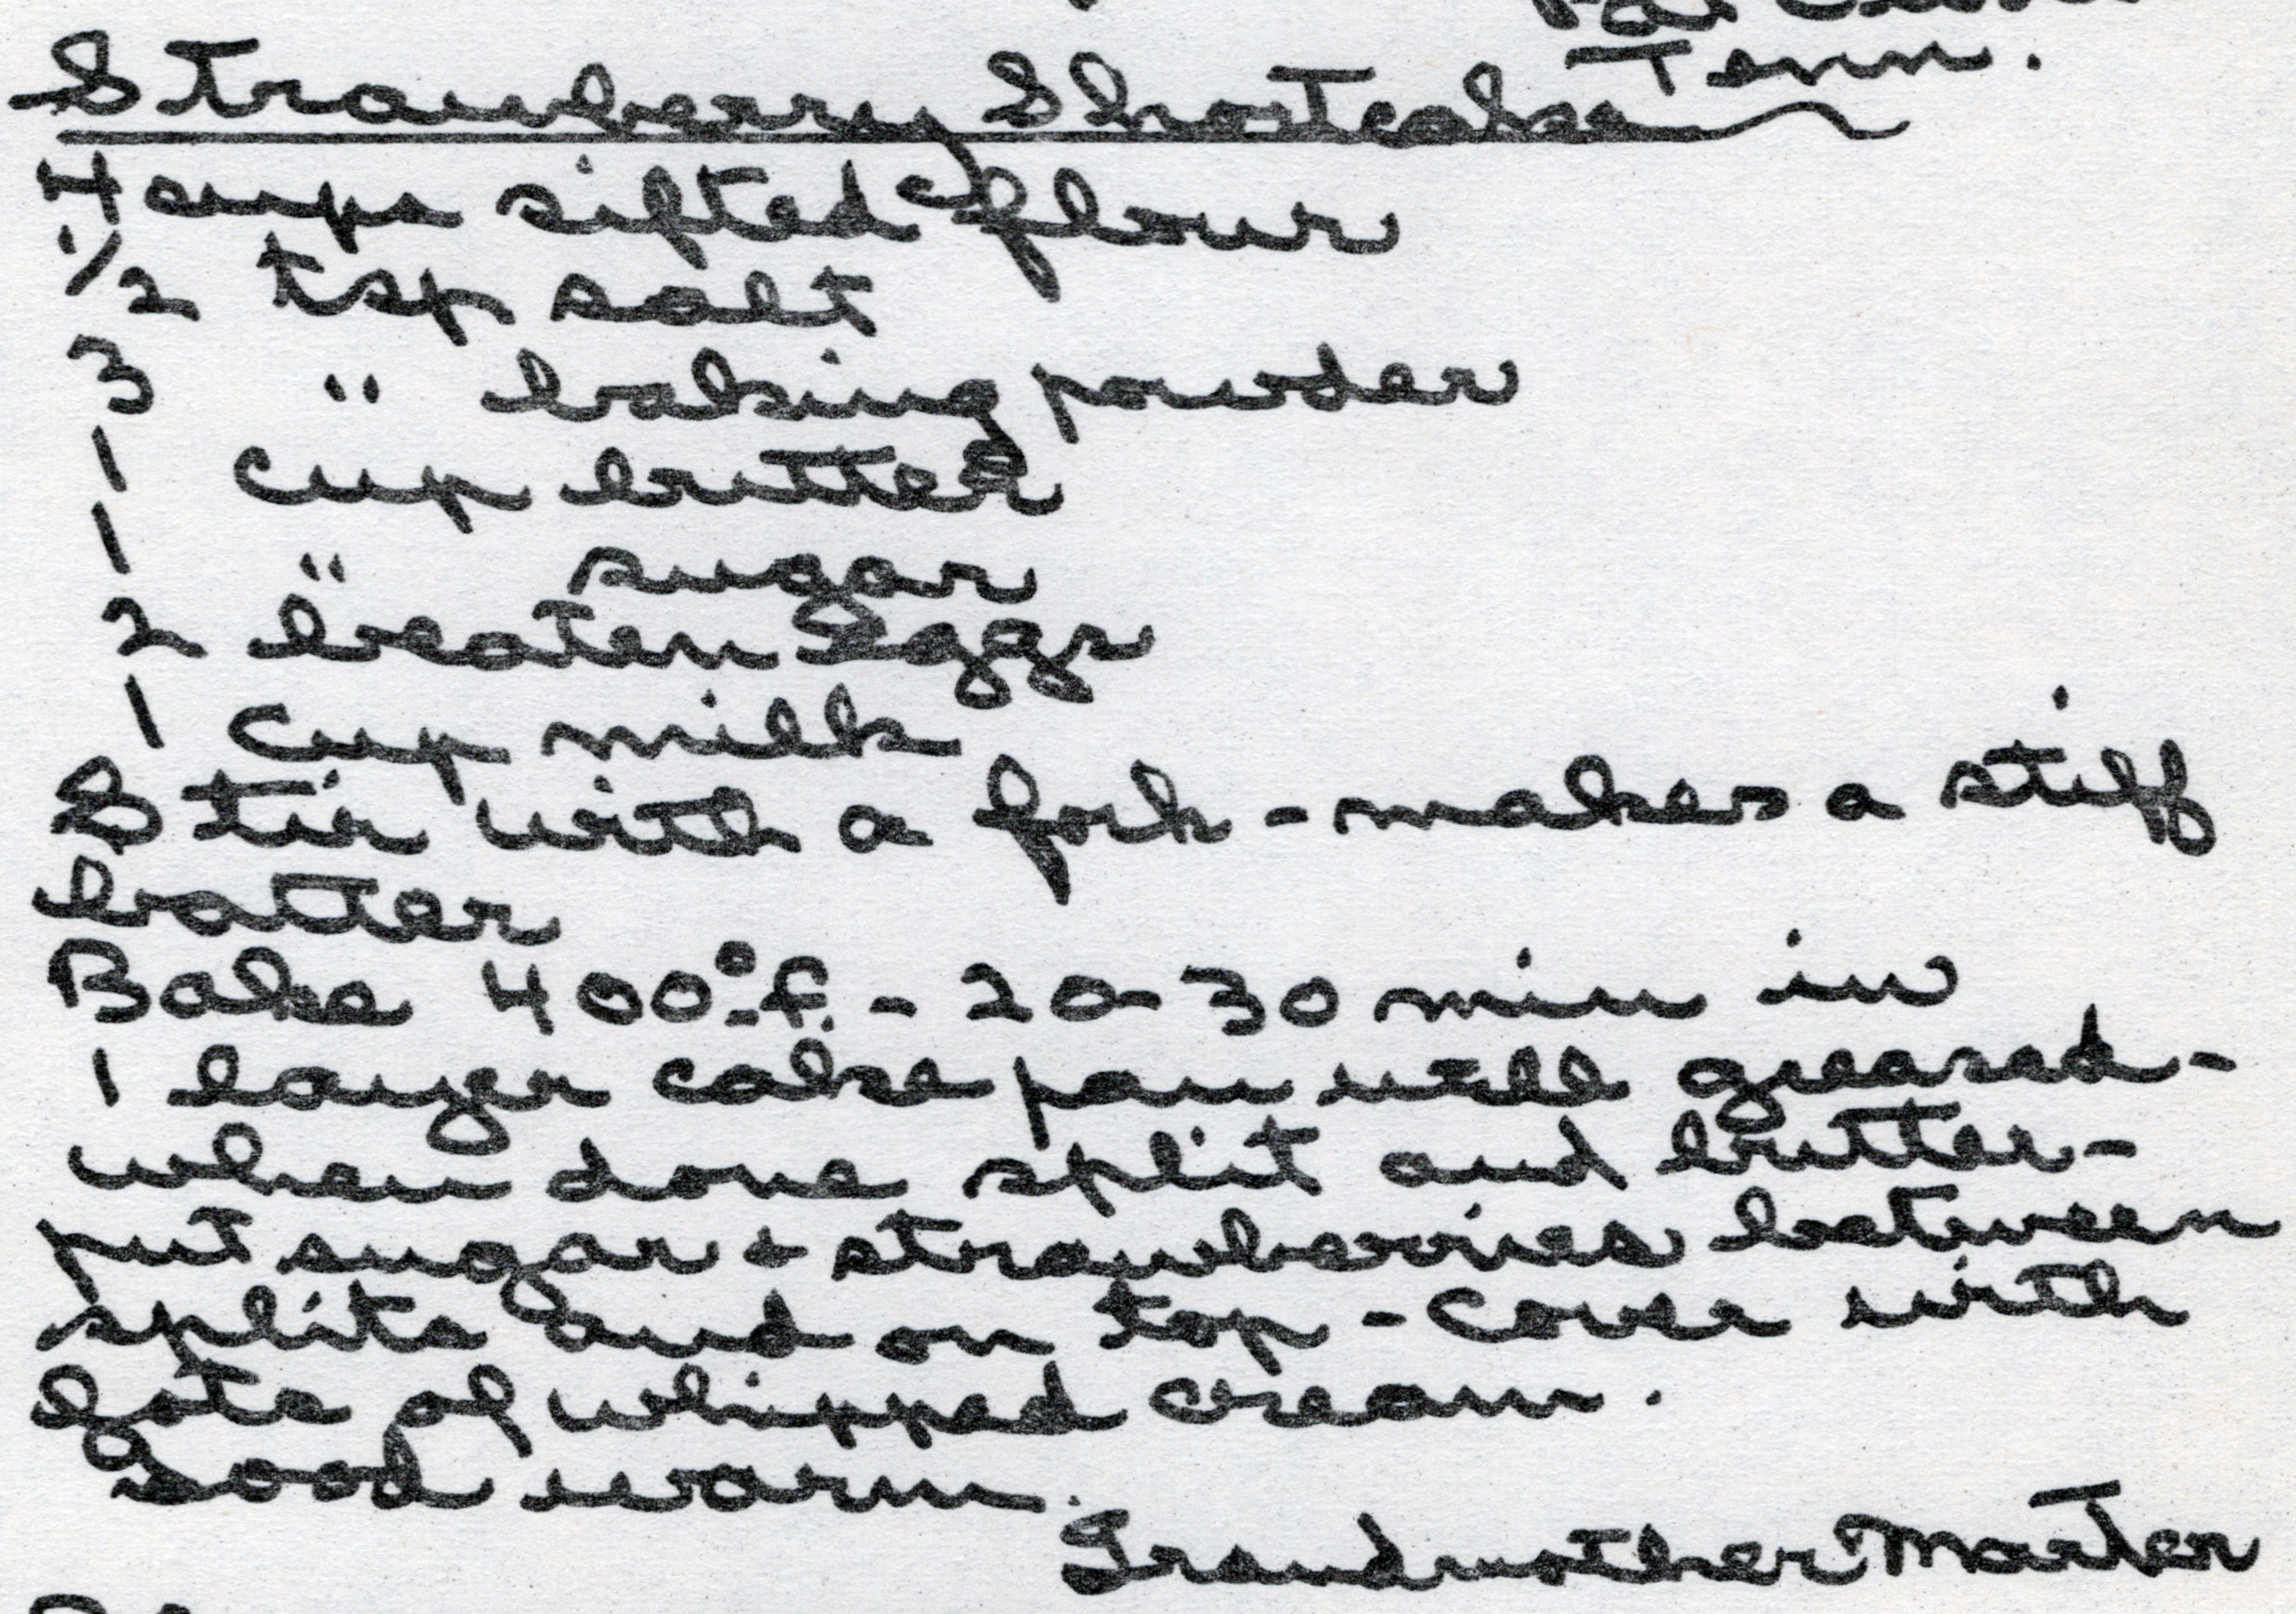 Tenn.
Strawberry Shortcake
4 cups sifted flour
1/2 tsp salt
3 " baking powder
1 cup butter
1 " sugar
2 beaten eggs
1 cup milk
Stir with a fork - makes a stiff
batter
Bake 400° f. - 20-30 min in
1 layer cake pan well greased -
when done split and butter -
put sugar + strawberries between
splits and on top - cover with
gots of whipped cream.
Good warm.
Grandmother Marter